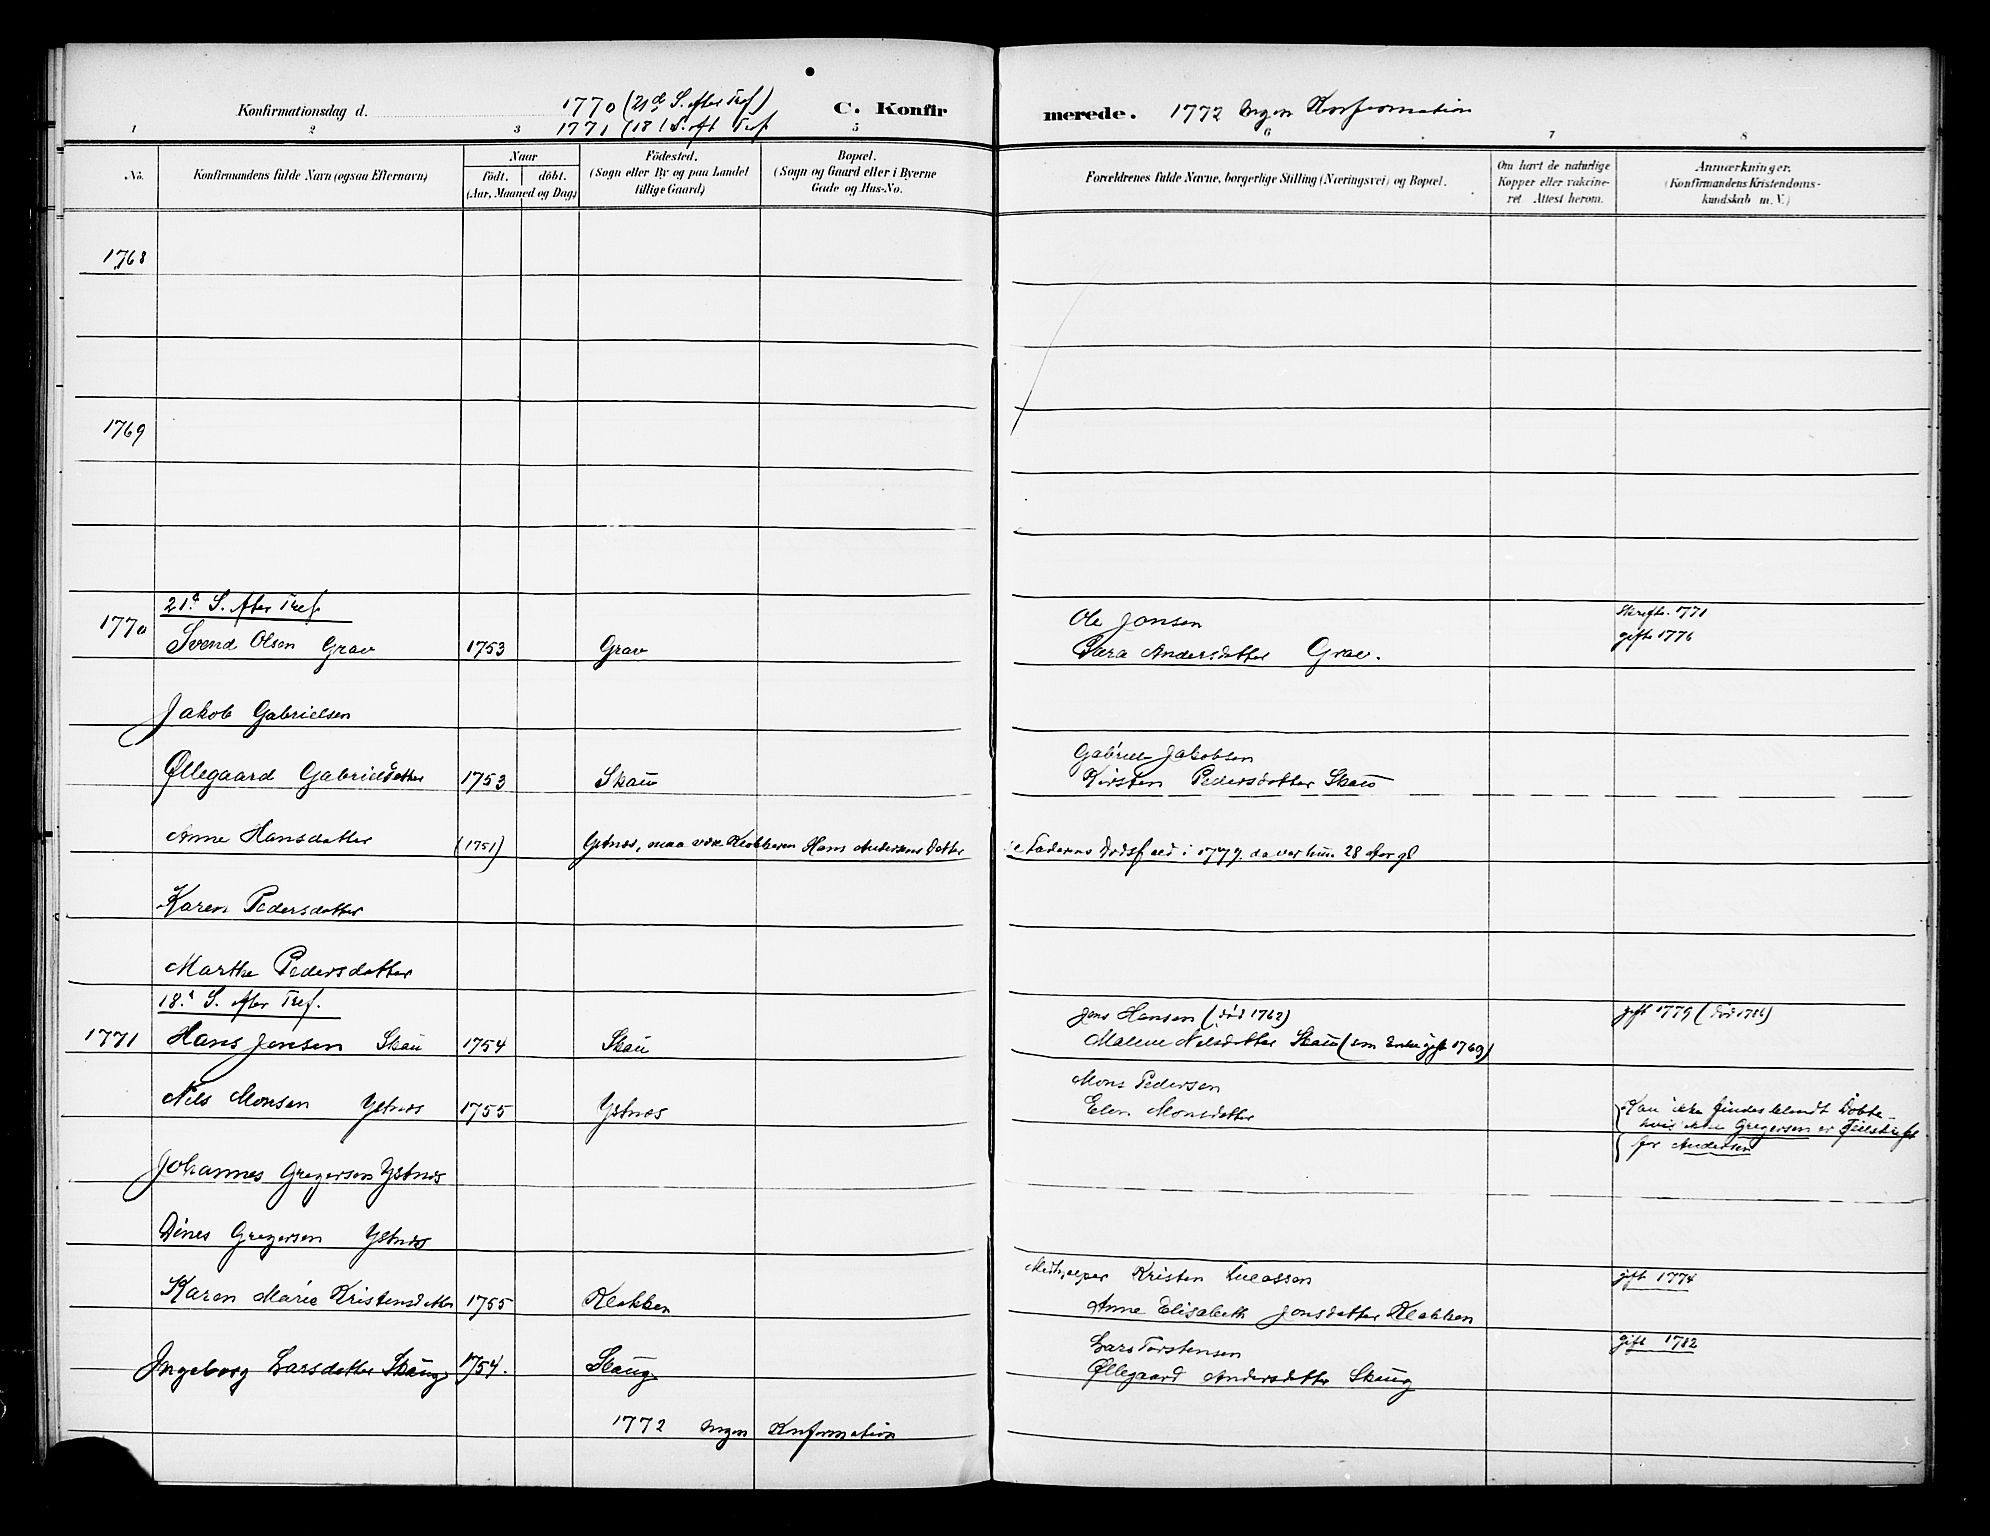 Konfirmationsdag d. 1770 (21de S. After Tref)
1771 (18 S. Aft Tref
C. Konfir
merede. 1772 Ingen Konfirmation
1 2 3 5 6 7 8
No.
Konfirmandens fulde Navn (ogsaa Efternavn)
Naar
født. døbt.
(Aar, Maaned og Dag)
Födested.
(Sogn eller By og paa Landet
tillige Gaard)
Bopæl.
(Sogn og Gaard eller i Byerne
Gade og Hus-No.
Forældrenes fulde Navne, borgerlige Stilling (Næringsvei) og Bopæl.
Om havt de naturlige
Kopper eller vakcine-
ret Attest herom.
Anmærkninger.
(Konfirmandens Kristendoms-
kundskab m. V.)
1768
1769
21de S. After Tref.
1770 Svend Olsen Grav 1753 Grav Ole Jonsen
Sara Andersdatter Grav. gift 1776
Jakob Gabrielsen
Øllegaard Gabrielsdatter 1753 Skau Gabriel Jakobsen
Kirsten Pedersdatter Skau
Anne Hansdatter (1751) Ystnes, maa være Klokkeren Hans Andersens Datter
Faderens Dødsfald i 1779 da var hun 28 Aar gl
Karen Pedersdatter
Marthe Pedersdatter
18de S. After Tref.
1771 Hans Jensen Skau 1754 Skau Jens Hansen (død 1762)
Malene Nilsdatter Skau (som Enke gift 1769) gift 1779 (død 1786)
Nils Monsen Ystnes 1755 Ystnes Mons Pedersen
Elen Monsdatter
Kan ikke findes blandt Døbte
hvis ikke Gregersen er Feilskrift
for Andersen
Johannes Gregersen Ystnes
Dines Gregersen Ystnes
Karen Marie Kristensdatter 1755 Klokken Medhjelper Kristen Lucassen
Anne Elisabeth Jonsdatter Klokken gift 1774
Ingeborg Larsdatter Skaug 1754. Skaug Lars Torstensen
Øllegaard Andersdatter Skaug gift 1782
1772 Ingen Konfirmation